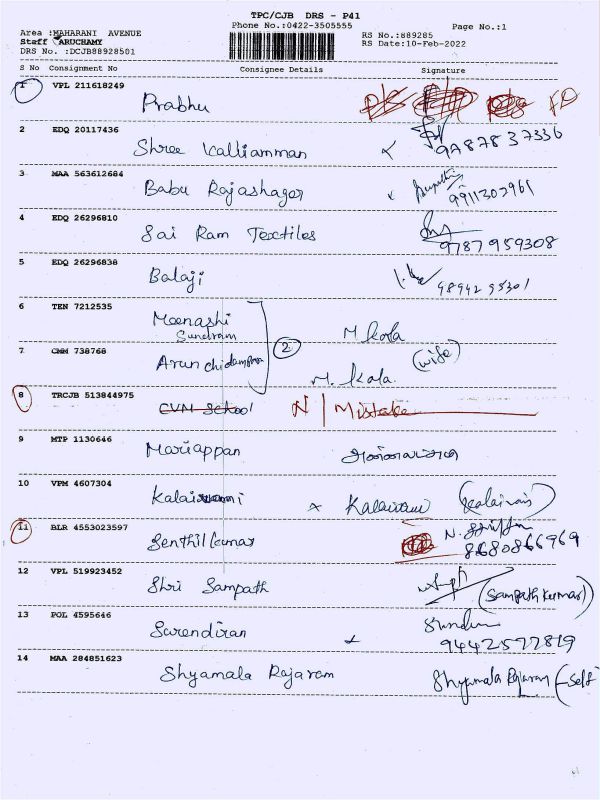 TPC/CJB DRS - P41
Phone No.:0422-3505555
Page No.:1
Area :MAHARANI AVENUE
Staff :ARUCHAMY
DRS No. :DCJB88928501
RS No.:889285
RS Date:10-Feb-2022
S No Consignment No Consignee Details Signature
1 VPL 211618249
Prabhu
2 EDQ 20117436
Shree Kalliamman 9787837336
3 MAA 563612684
Babu Rajashager
4 EDQ 26296810
Sai Ram Textiles
9787959308
5 EDQ 26296838
Balaji 9894295301
6 TEN 7212535
Meenashi
Sundram
M Kala
2
7 CMM 738768
Arun chidambram M. Kala. (wife)
8 TRCJB 513844975
CVM School N | Mistake
9 MTP 1130646
Mariappan
10 VPM 4607304
Kalaivani x Kalaivani (Kalaivani)
11 BLR 4553023597
Senthil Kumar 8680866969
12 VPL 519923452
Shri Sampath (Sampath Kumar)
13 POL 4595646
Surendiran
9442577819
14 MAA 284851623
Shyamala Rajaram Shyamala Rajaram (-Self